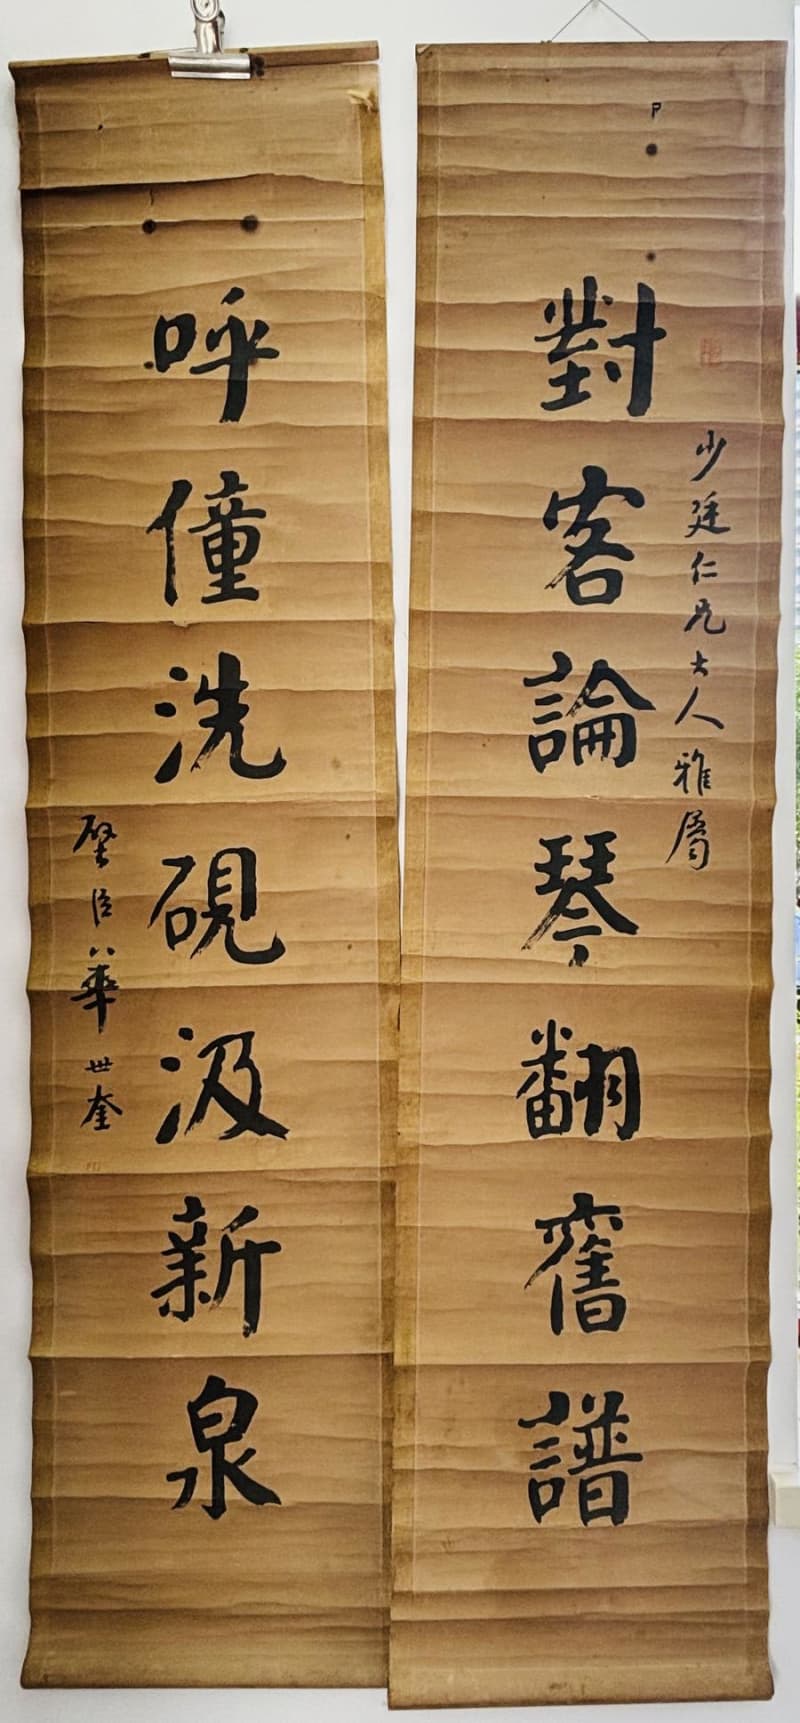 少廷仁兄大人雅屬
對客論琴翻舊譜
呼僮洗硯汲新泉
璧臣華世奎